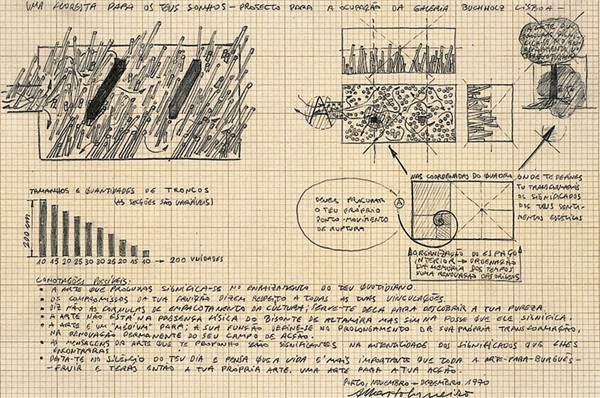 UMA FLORESTA PARA OS TEUS SONHOS — PROJECTO PARA A OCUPAÇÃO DA GALERIA BUCHHOLZ LISBOA —
A
NAS COORDENADAS DO QUADRO
ONDE TE DEFINES
TU TRANSFORMARÁS
OS SIGNIFICADOS
DOS TEUS SENTI-
MENTOS ESTÉTICOS
DEVES PROCURAR
O TEU PRÓPRIO
PONTO-MOVIMENTO
DE RUPTURA
A
ORGANIZAÇÃO DO ESPAÇO
INTERIOR → ORDENAÇÃO
DA MEMÓRIA DOS TEMPOS
NUMA RENOVAÇÃO DAS ORIGENS
TAMANHOS E QUANTIDADES DE TRONCOS
(AS SECÇÕES SÃO VARIÁVEIS)
200 cm
10 15 20 25 30 30 25 20 15 10 → 200 UNIDADES
CONOTAÇÕES POSSÍVEIS:
• A ARTE QUE PROCURAS SIGNIFICA-SE NO ENRAIZAMENTO DO TEU QUOTIDIANO.
• OS COMPROMISSOS DA TUA FRUIÇÃO DIZEM RESPEITO A TODAS AS TUAS VINCULAÇÕES.
• DIZ NÃO ÀS CÁPSULAS DE EMPACOTAMENTO DA CULTURA; SERVE-TE DELA PARA DESCOBRIR A TUA PUREZA
• A ARTE NÃO ESTÁ NA PRESENÇA FÍSICA DO BISONTE DE ALTAMIRA MAS SIM NA POSSE QUE ELE SIGNIFICA.
• A ARTE É UM "MEDIUM" PARA; A SUA FUNÇÃO DEFINE-SE NO PROLONGAMENTO DA SUA PRÓPRIA TRANSFORMAÇÃO,
NA RENOVAÇÃO PERMANENTE DO SEU CAMPO DE ACÇÃO.
• AS MENSAGENS DA ARTE QUE TE PROPONHO SERÃO SIGNIFICANTES NA INTENCIONALIDADE DOS SIGNIFICADOS QUE LHES
ENCONTRARAS
• DEITA-TE NO SILÊNCIO DO TEU DIA E PENSA QUE A VIDA É MAIS IMPORTANTE QUE TODA A ARTE-PARA-BURGUÊS-
-FRUIR E TERÁS ENTÃO A TUA PRÓPRIA ARTE, UMA ARTE PARA A TUA ACÇÃO.
PORTO, NOVEMBRO — DEZEMBRO, 1970
Alberto Carneiro